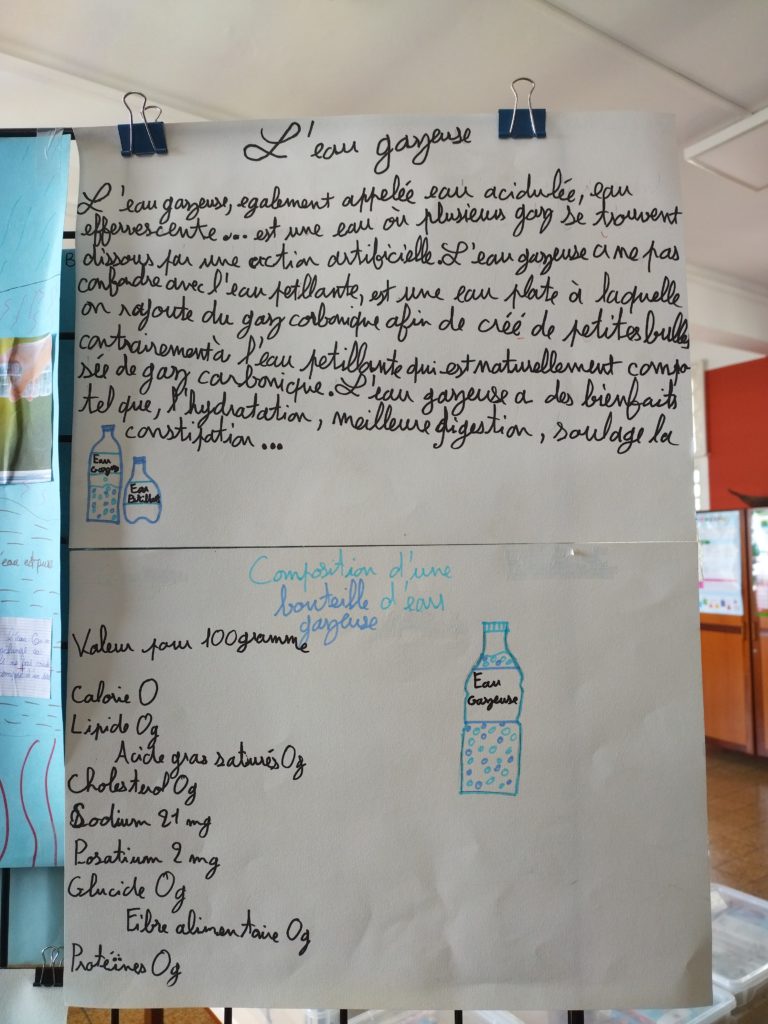 L'eau gazeuse
L'eau gazeuse, egalement appelée eau acidulée, eau
effervescente... est une eau où plusieurs gaz se trouvent
dissous par une action artificielle. L'eau gazeuse à ne pas
confondre avec l'eau petillante, est une eau plate à laquelle
on rajoute du gaz carbonique afin de créé de petites bulles,
contrairement à l'eau petillante qui est naturellement compo
sée de gaz carbonique. L'eau gazeuse a des bienfaits
tel que, l'hydratation, meilleure digestion, soulage la
constipation...
Eau
Gazeuse
Eau
Petillante
Composition d'une
bouteille d'eau
gazeuse
Valeur pour 100gramme
Calorie 0
Lipide 0g
Acide gras saturés 0g
Cholesterol 0g
Sodium 21 mg
Posatium 2 mg
Glucide 0g
Fibre alimentaire 0g
Protéines 0g
Eau
Gazeuse